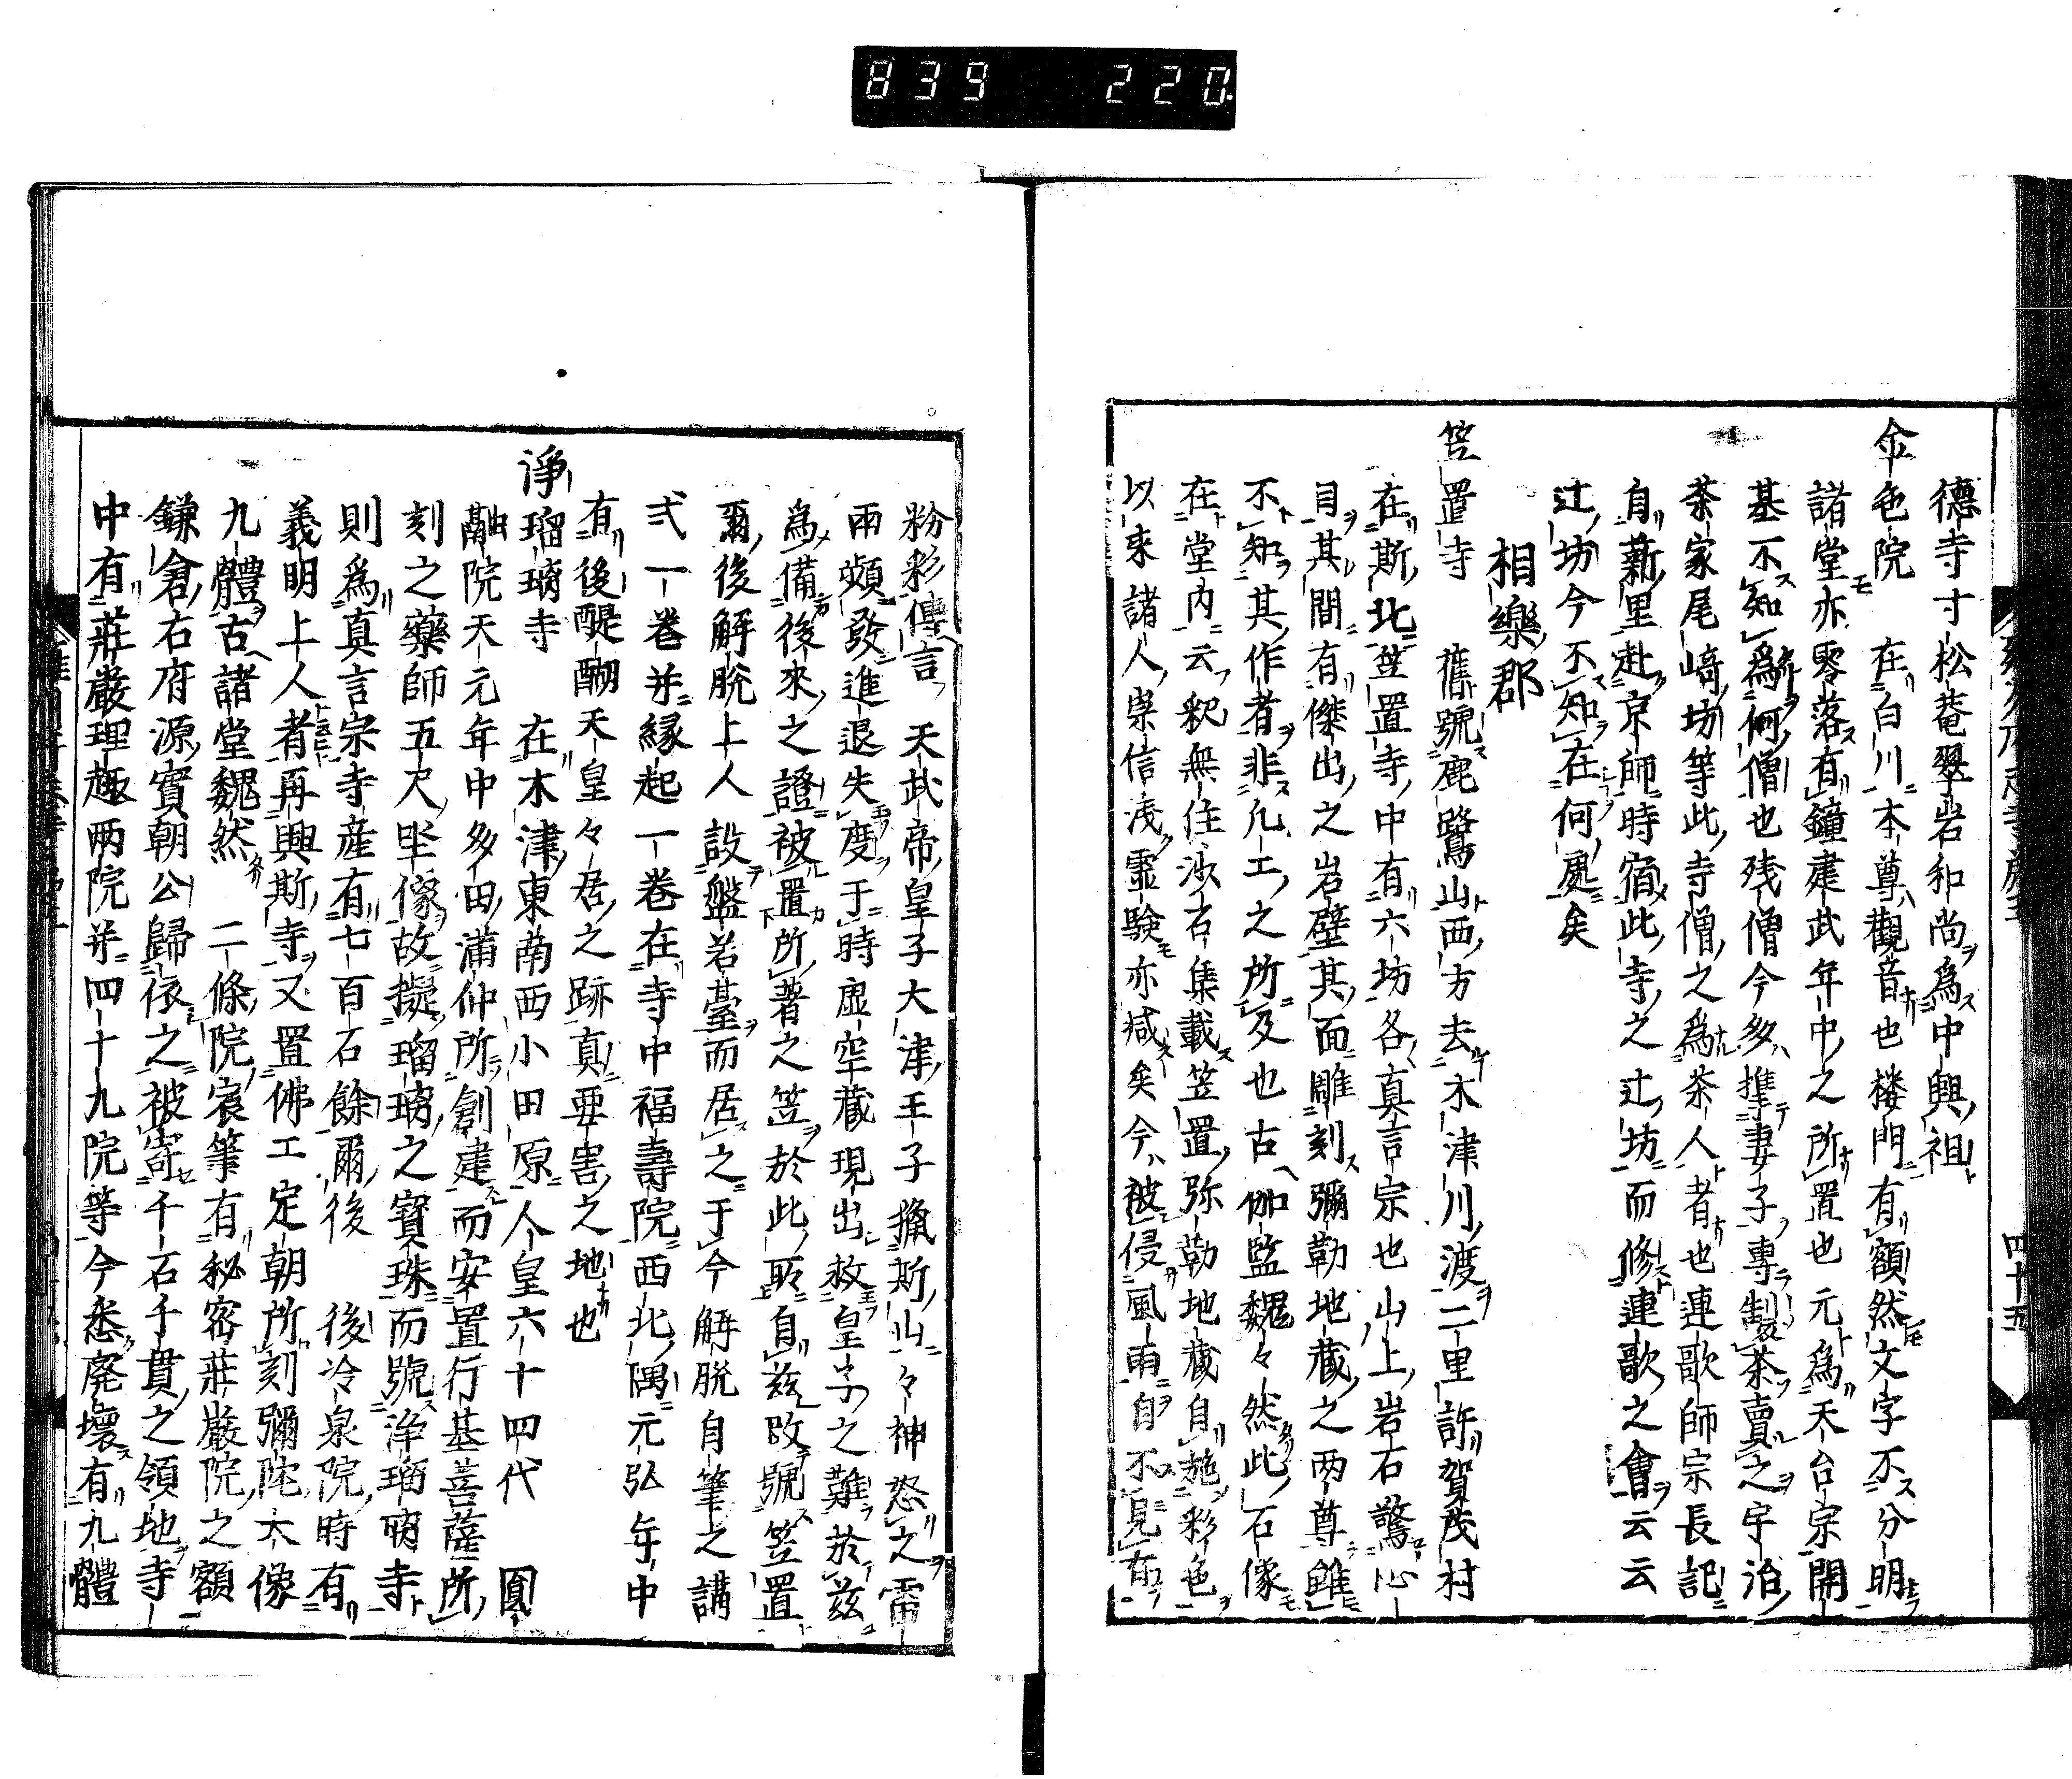 839 220
四十五
德寺寸松菴翠岩和尚爲中興祖
金色院 在白川本尊觀音也楼門有額然文字不分明
諸堂亦零落有鐘建武年中之所置也元爲天台宗開
基不知爲何僧也残僧今多携妻子專製茶賣之宇治
茶家尾﨑坊等此寺僧之爲茶人者也連歌師宗長記
自薪里赴京師時宿此寺之辻坊而修連歌之會云云
辻坊今不知在何處矣
相樂郡
笠置寺 舊號鹿鷺山西方去木津川渡二里許賀茂村
在斯北笠置寺中有六坊各真言宗也山上岩石驚心
目其間有傑出之岩壁其面雕刻彌勒地藏之两尊雖
不知其作者非凡工之所及也古伽監魏々然此石像
在堂内云釈無住沙石集載笠置弥勒地藏自施彩色
以来諸人崇信浅霊験亦减矣今被侵風雨自不見有
粉彩傳言天武帝皇子大津王子獵斯山々神怒之雷
雨頻發進退失度于時虚空藏現出救皇子之難於兹
爲備後來之證被置所著之笠於此取自兹改號笠置
爾後解脱上人設盤若臺而居之于今解脱自筆之講
弍一卷并縁起一卷在寺中福壽院西北隅元弘年中
有後醍醐天皇々居之跡真要害之地也
淨瑠璃寺 在木津東南西小田原人皇六十四代 圓
融院天元年中多田満仲所創建而安置行基菩薩所
刻之藥師五尺坐像故擬瑠璃之寶珠而號淨瑠璃寺
則爲真言宗寺産有七百石餘爾後 後冷泉院時有
義明上人者再興斯寺又置佛工定朝所刻彌陀大像
九體古諸堂魏然 二條院宸筆有秘密莊嚴院之額
鎌倉右府源實朝公歸依之被寄千石千貫之領地寺
中有莊嚴理趣两院并四十九院等今悉廃壞有九體